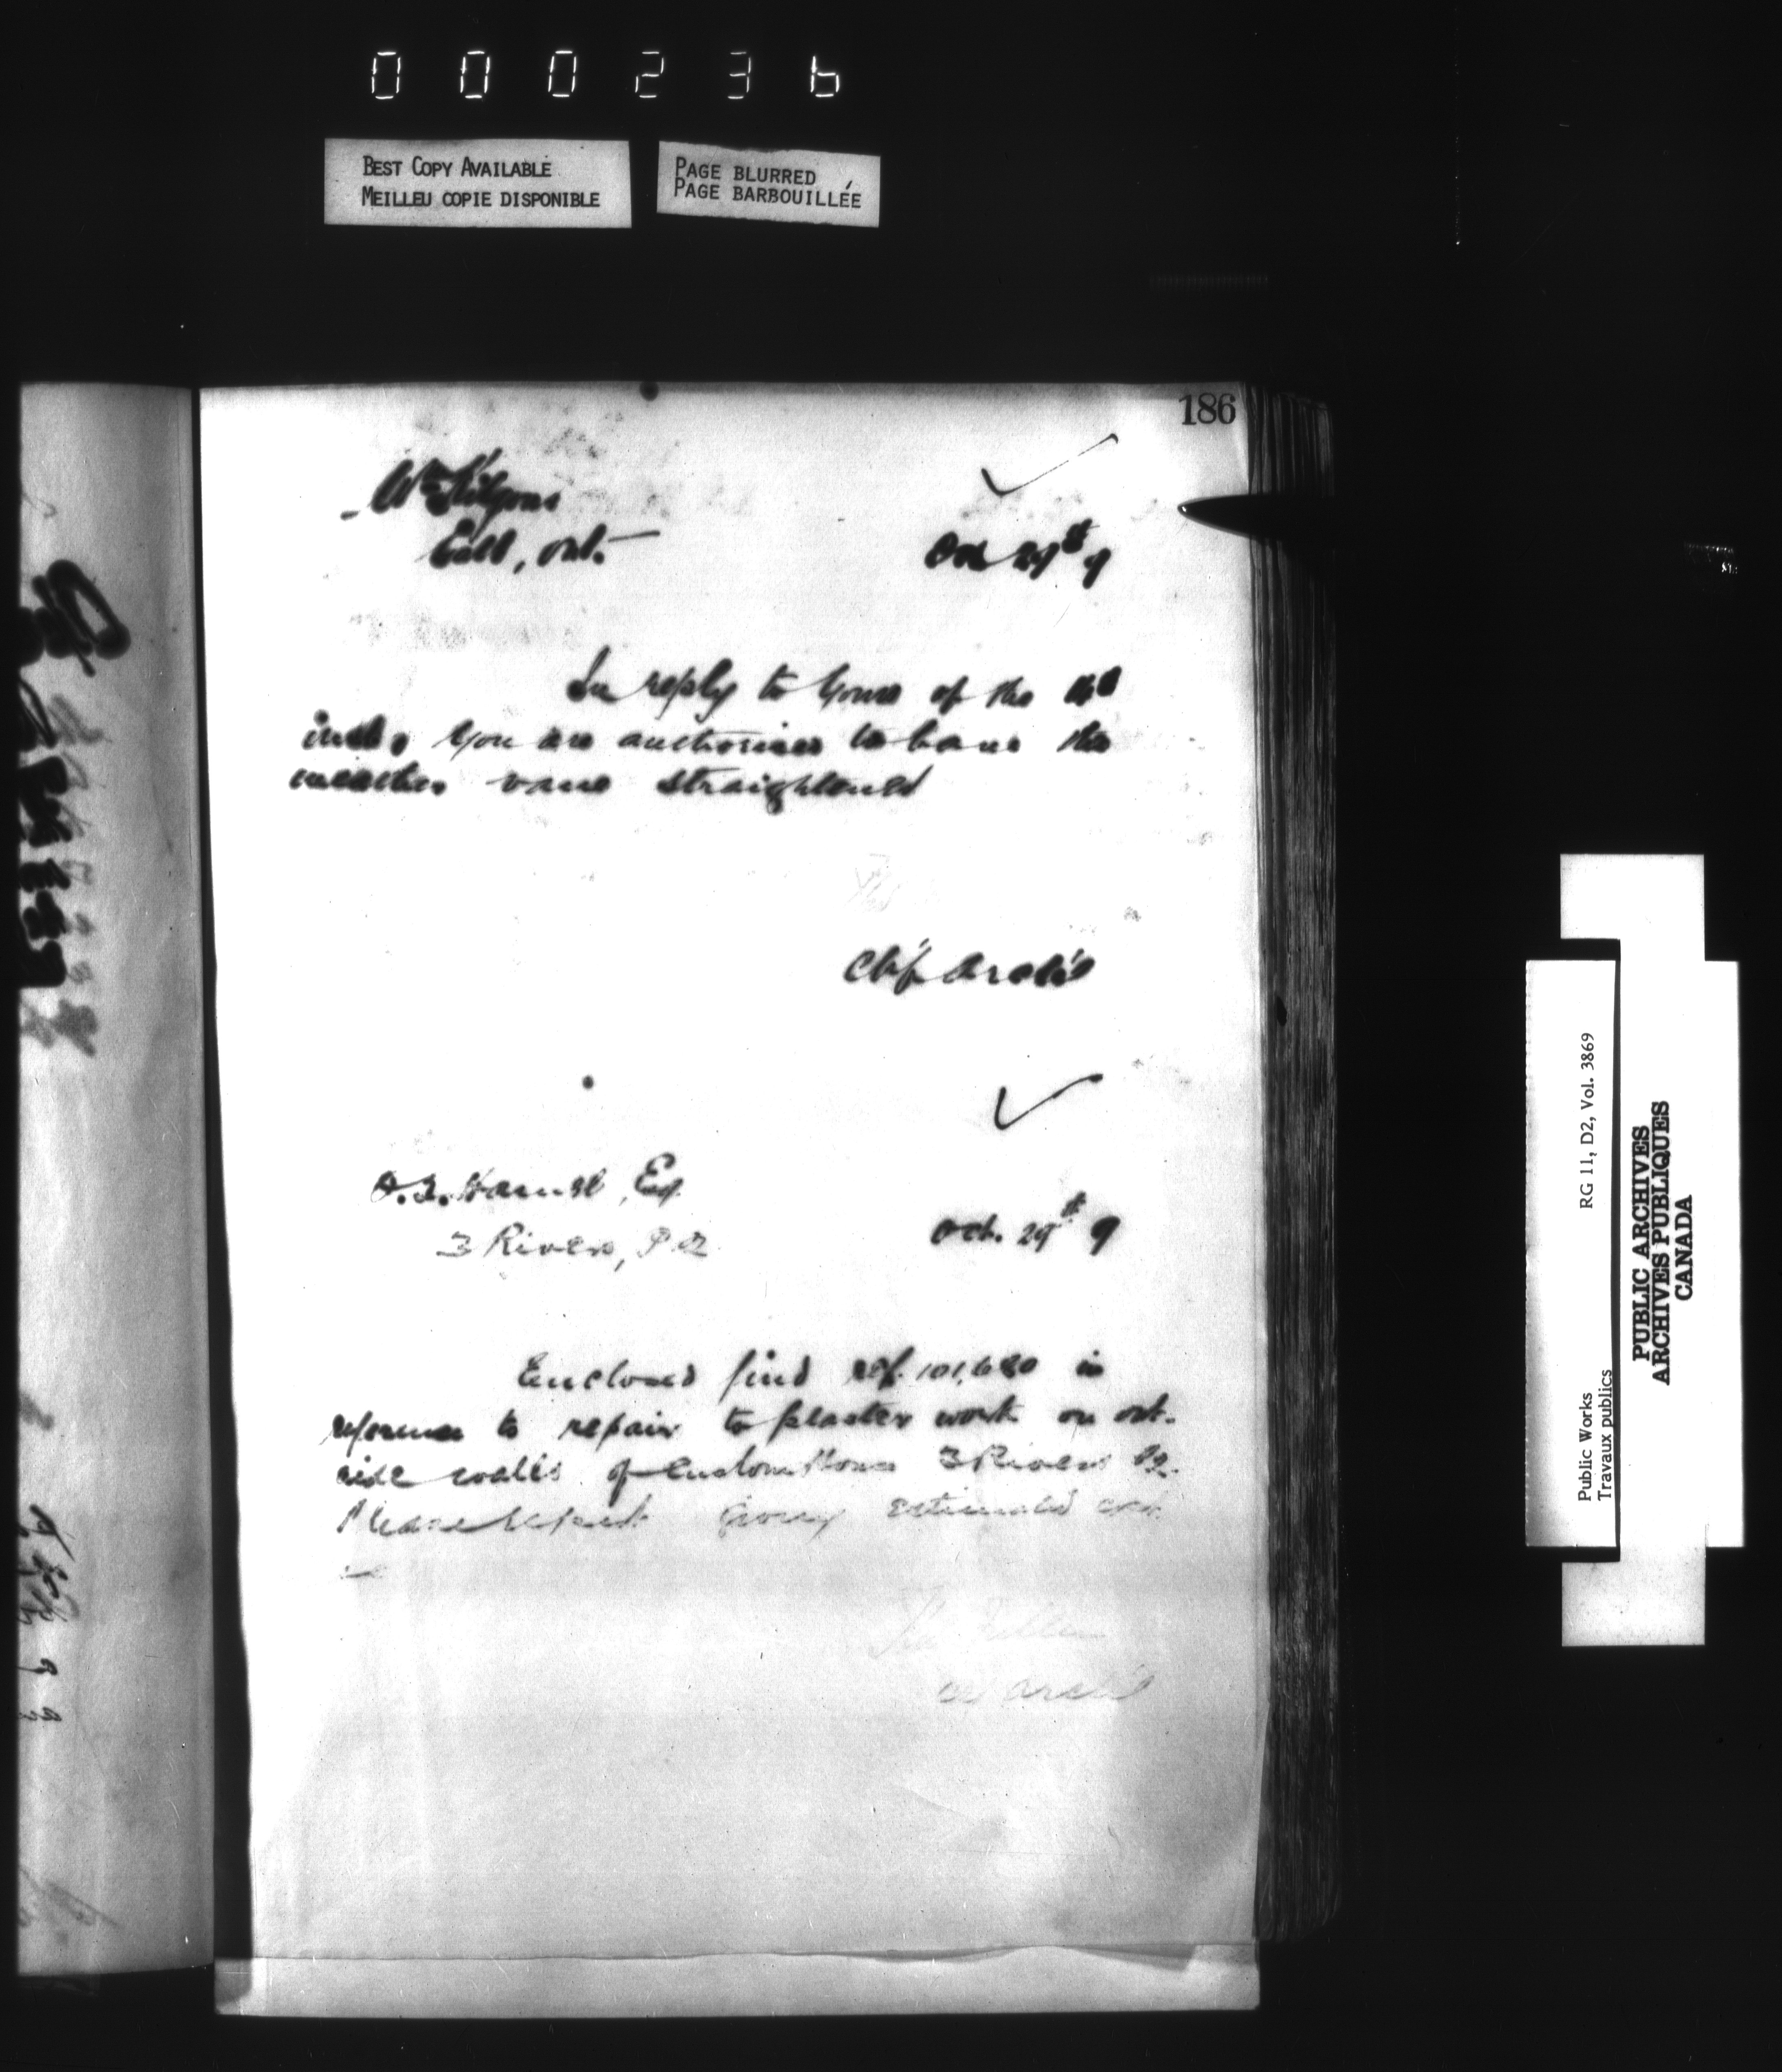 000236
BEST COPY AVAILABLE
MEILLEU COPIE DISPONIBLE
PAGE BLURRED
PAGE BARBOUILLÉE
186
Wm
Galt, Ont.
Oct 29th 9
In reply to yours of the
inst, you are authorised to have the
weather vane straightened
Chf Archt
Esq.
3 Rivers, P.Q.
Oct. 29th 9
Enclosed find ref. 101,680 in
reference to repair to plaster work on out-
side walls of Custom House 3 Rivers P.Q.
Please report giving estimated cost
Fuller
Archt
RG 11, D2, Vol. 3869
Public Works
Travaux publics
PUBLIC ARCHIVES
ARCHIVES PUBLIQUES
CANADA